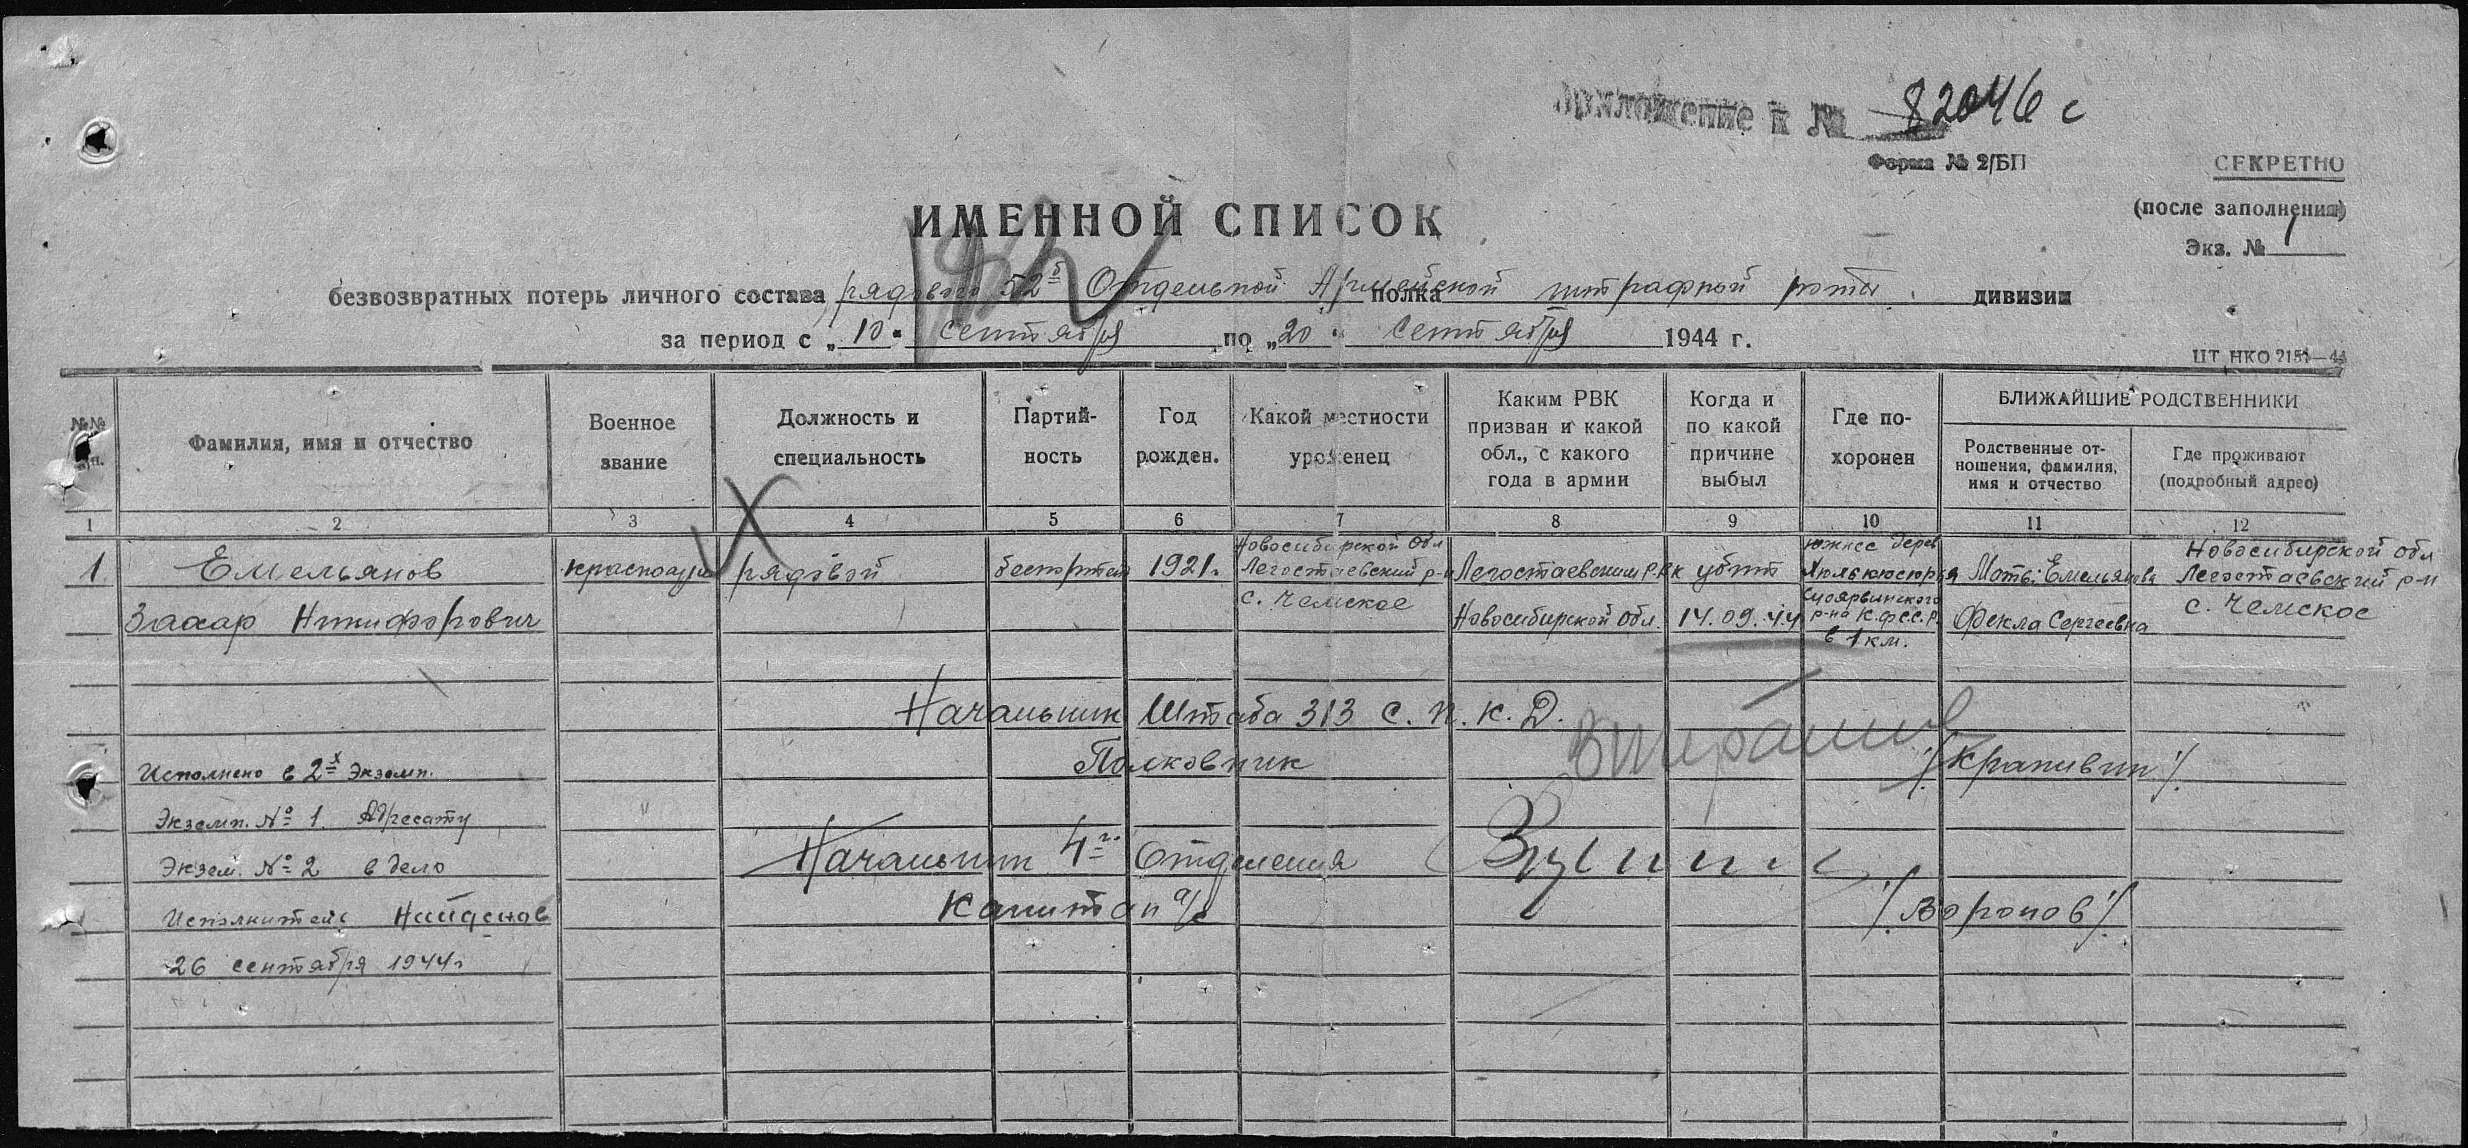 Приложение к № 82046 с
Форма № 2/БП
СЕКРЕТНО
(после заполнения)
Экз. № 1
ИМЕННОЙ СПИСОК
безвозвратных потерь личного состава рядового 52й Отдельной Армейской полка штрафной роты дивизии
за период с „10" сентября по „20" сентября 1944 г.
ЦТ НКО 2151—44
№№ п/п.
Фамилия, имя и отчество
Военное звание
Должность и специальность
Партий-
ность
Год рожден.
Какой местности уроженец
Каким РВК
призван и какой
обл., с какого
года в армии
Когда и
по какой
причине
выбыл
Где по-
хоронен
БЛИЖАЙШИЕ РОДСТВЕННИКИ
Родственные от-
ношения, фамилия,
имя и отчество
Где проживают
(подробный адрес)
1 2 3 4 5 6 7 8 9 10 11 12
1 Емельянов
Захар Никифорович
красноар
рядовой
беспартий
1921г
Новосибирской Обл
Легостаевский р-н
с. Чемское
Легостаевским РВК
Новосибирской Обл.
убит
14.09.44
южнее дерев
Суоярвинского
р-на К.Ф.С.С.Р.
в 1 км.
Мать: Емельянова
Фекла Сергеевна
Новосибирской обл
Легостаевский р-н
с. Чемское
Начальник Штаба 313 С. П. К. Д.
Полковник /Крапивин/
Исполнено в 2х экземп.
Экземп. № 1 Адресату
Начальник 4го Отделения
Экзем. № 2 в дело
Капитан а/с /Воронов/
Исполнитель Найденов
26 сентября 1944г